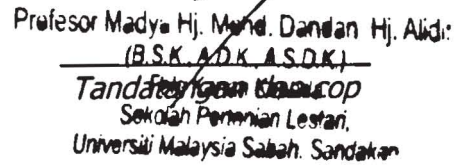 Profesor Madya Hj. Mohd. Dandan Hj. Alidi:
(B.S.K. A.D.K. A.S.D.K.)
Tandatangan cop
Sekolah Pertanian Lestari,
Universiti Malaysia Sabah. Sandakan